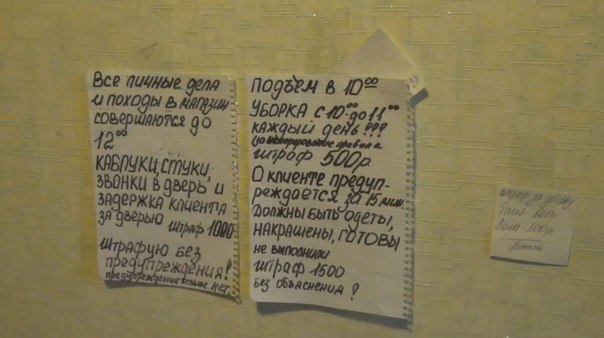 Все личные дела
и походы в магазин
совершаются до
12⁰⁰
Каблуки, стуки,
звонки в дверь, и
задержка клиента
за дверью штраф 1000
штрафую без
предупреждения!
предупреждений больше нет
Подъём в 10⁰⁰
Уборка с 10⁰⁰ до 11⁰⁰
каждый день ???
за игнорирование правила
штраф 500р
О клиенте предуп-
реждается за 15 мин.
должны быть одеты,
накрашены, готовы
не выполнили
штраф 1500
без объяснения ?
штраф за уборку